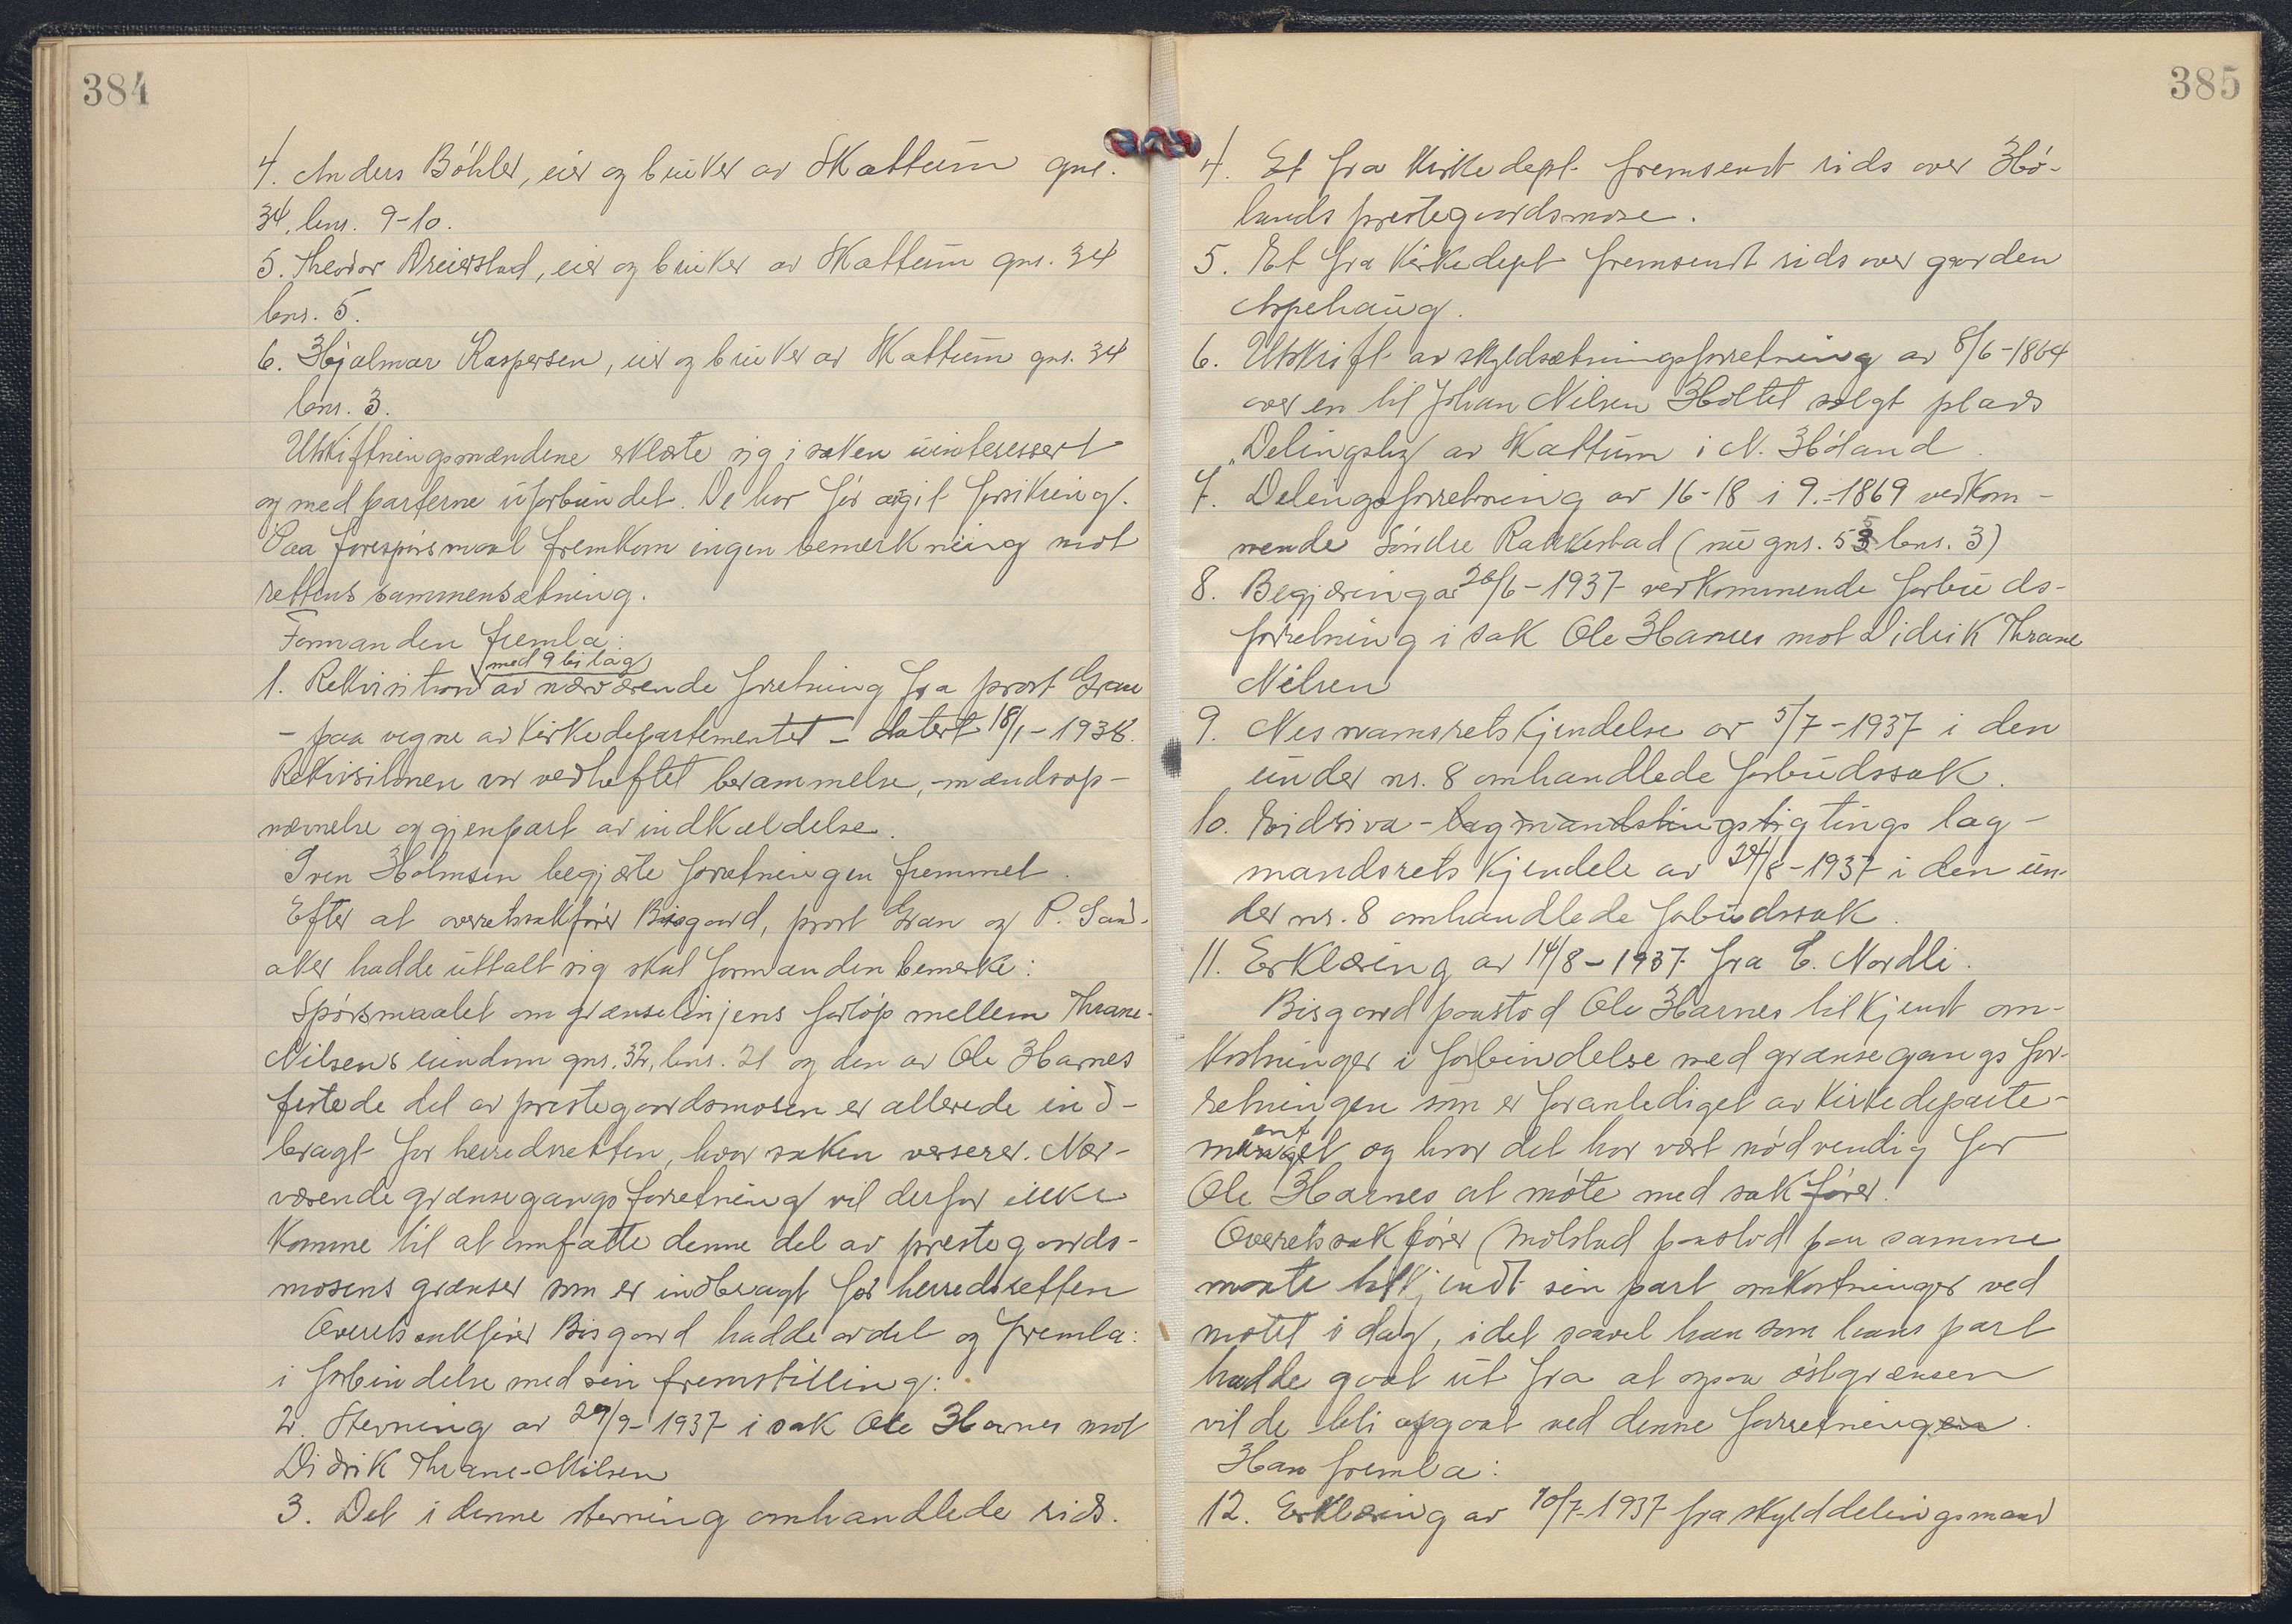 384
4. Anders Böhler, eier og bruker av Skattum gnr.
34, bnr. 9-10.
5. Theodor Dreierstad, eier og bruker av Skattum gnr. 34
bnr. 5.
6. Hjalmar Kaspersen, eier og bruker av Skattum gnr. 34
bnr. 3.
Utskiftningsmændene erklærte sig i saken uinteressert
og med parterne uforbundet. De har før avgit forsikring.
Paa forespørsmaal fremkom ingen bemerkning mot
rettens sammensætning.
Formanden fremla:
med 9 bilag
1. Rekvisition av nærværende forretning fra prost Gran
- paa vegne av Kirkedepartementet - datert 18/1-1938.
Rekvisitionen var vedheftet berammelse, -mændsop-
nævnelse og gjenpart av indkaldelse.
Iven Holmsen begjærte forretningen fremmet.
Efter at overretssakfører Bisgaard, prost Gran og P. Sand-
aker hadde uttalt sig skal formanden bemerke:
Spørsmaalet om grænselinjens forløp mellem Thrane-
Nilsens eiendom gnr. 32, bnr. 21 og den av Ole Harnes
festede del av prestegaardsmosen er allerede ind-
bragt for herredsretten, hvor saken verserer. Nær-
værende grænsegangsforretning vil derfor ikke
komme til at omfatte denne del av prestegaards-
mosens grænser som er indbragt for herredsretten
Overetssakfører Bisgaard hadde ordet og fremla:
i forbindelse med sin fremstilling:
2. Stevning av 29/9-1937 i sak Ole Harnes mot
Didrik Thrane-Nilsen
3. Det i denne stevning omhandlede rids.
385
4. Et fra Kirkedept. fremsendt rids over Hø-
lands prestegaardsmose.
5. Et fra Kirkedept fremsendt rids over garden
Aspehaug.
6. Utskrift av skyldsætningsforretning av 8/6-1864
over en til Johan Nilsen Holtet solgt plads
"Delingsby av Skattum i N. Höland.
7. Delingsforretning av 16-18 i 9.-1869 vedkom-
mende Söndre Rakkestad (nu gnr. 53 bnr. 3)
8. Begjæring av 26/6-1937 vedkommende forbuds-
forretning i sak Ole Harnes mot Didrik Thrane
Nilsen
9. Nes namsrets kjendelse av 5/7-1937 i den
under nr. 8 omhandlede forbudssak.
10. Eidsiva-lagmandstingstig tings lag-
mandsrets kjendele av 24/8-1937 i den un-
der nr. 8 omhandlede forbudssak.
11. Erklæring av 14/8-1937 fra E. Nordli.
Bisgaard paastod Ole Harnes tilkjendt om-
kostninger i forbindelse med grænsegangsfor-
retningen som er foranlediget av Kirkedeparte-
mentet og hvor det har vært nödvendig for
Ole Harnes at möte med sakfører.
Overetssakfører Molstad paastod paa samme
maate tilkjendt sin part omkostninger ved
mötet i dag, idet saavel han som hans part
hadde gaat ut fra at ogsaa östgrænsen
vilde bli opgaat ved denne forretningen.
Han fremla:
12. Erklæring av 10/7-1937 fra skylddelingsmand